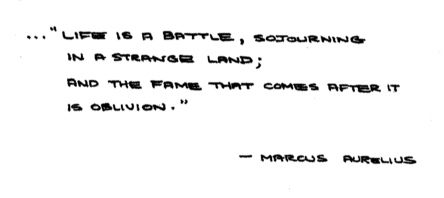 ..."LIFE IS A BATTLE, SOJOURNING
IN A STRANGE LAND;
AND THE FAME THAT COMES AFTER IT
IS OBLIVION."
— MARCUS AURELIUS